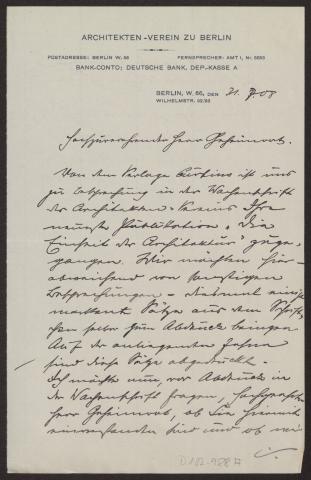 ARCHITEKTEN-VEREIN ZU BERLIN
POSTADRESSE: BERLIN W. 66 FERNSPRECHER: AMT I, Nr. 5593
BANK-CONTO: DEUTSCHE BANK, DEP.-KASSE A
BERLIN, W. 66, DEN 21. 7. 08
WILHELMSTR. 92/93
Herr Geheimrat.
Von dem Verlage Curtius ist uns
zur Besprechung in der Wochenschrift
des Architekten-Vereins Ihre
neueste Publikation „Die
Einheit der Architektur" zuge-
gangen. Wir möchten hier-
abweichend von sonstigen
Besprechungen - diesmal einige
markante Sätze aus dem Schrift-
chen selber zum Abdruck bringen.
Auf der anliegenden Fahne
sind diese Sätze abgedruckt.
Ich möchte nun, vor Abdruck in
der Wochenschrift fragen, hochgeehrter
Herr Geheimrat, ob Sie hiermit
einverstanden sind und ob wir